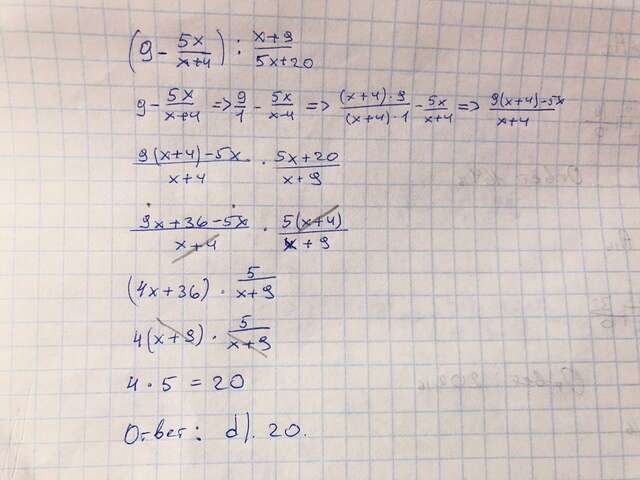 (9 - 5x/(x+4)) : (x+9)/(5x+20)
9 - 5x/(x+4) => 9/1 - 5x/(x-4) => ((x+4)·9)/((x+4)·1) - 5x/(x+4) => (9(x+4)-5x)/(x+4)
(9(x+4)-5x)/(x+4) · (5x+20)/(x+9)
(9x+36-5x)/(x+4) · (5(x+4))/(x+9)
(4x+36) · 5/(x+9)
4(x+9) · 5/(x+9)
4 · 5 = 20
Ответ: d). 20.